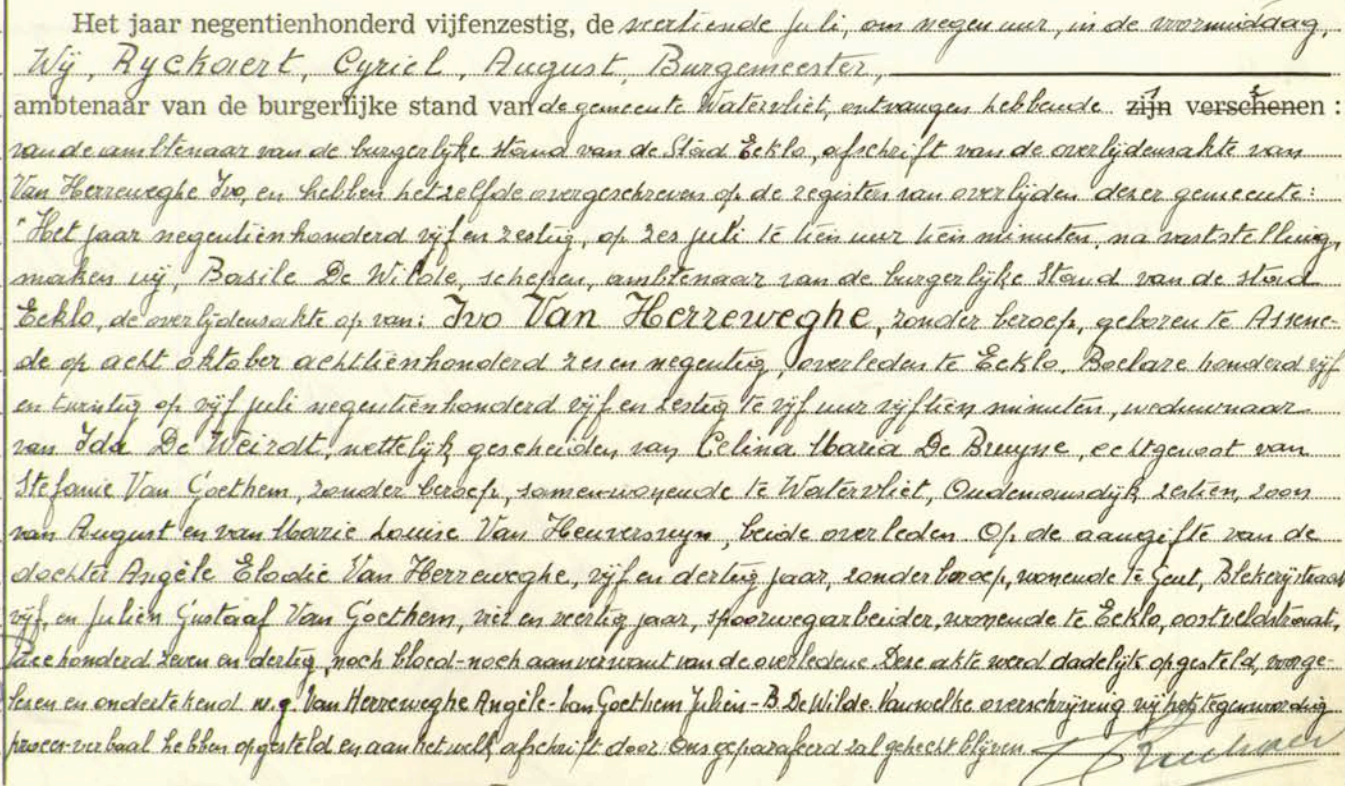 Het jaar negentienhonderd vijfenzestig, de veertiende juli, om negen uur, in de voormiddag,
Wij, Ryckaert, Cyriel, August, Burgemeester,
ambtenaar van de burgerlijke stand van de gemeente Watervliet, ontvangen hebbende zijn verschenen :
van de ambtenaar van de burgerlijke stand van de Stad Eeklo, afschrift van de overlijdensakte van
Van Herreweghe Ivo, en hebben hetzelfde overgeschreven op de registers van overlijden dezer gemeente:
"Het jaar negentienhonderd vijf en zestig, op zes juli te tien uur tien minuten, na vaststelling,
maken wij, Basile De Wilde, schepen, ambtenaar van de burgerlijke Stand van de stad
Eeklo, de overlijdensakte op van: Ivo Van Herreweghe, zonder beroep, geboren te Assene-
de op acht oktober achttienhonderd zes en negentig, overleden te Eeklo, Boelare honderd vijf
en twintig op vijf juli negentienhonderd vijf en zestig te vijf uur vijftien minuten, weduwnaar
van Ida De Weirdt, wettelijk gescheiden van Celina Maria De Bruyne, echtgenoot van
Stefanie Van Goethem, zonder beroep, samenwonende te Watervliet, Oudemansdijk zestien, zoon
van August en van Marie Louise Van Heuverswyn, beide overleden. Op de aangifte van de
dochter Angèle Elodie Van Herreweghe, vijf en dertig jaar, zonder beroep, wonende te Gent, Blekerijstraat
vijf, en Julien Gustaaf Van Goethem, vier en veertig jaar, spoorwegarbeider, wonende te Eeklo, oostveldstraat,
twee honderd zeven en dertig, noch bloed-noch aanverwant van de overledene. Deze akte werd dadelijk opgesteld, voorge-
lezen en ondertekend w.g. Van Herreweghe Angèle-Van Goethem Julien-B. De Wilde. Van welke overschrijving wij het tegenwoordig
proces-verbaal hebben opgesteld en aan hetwelk afschrift door Ons geparafeerd zal gehecht blijven